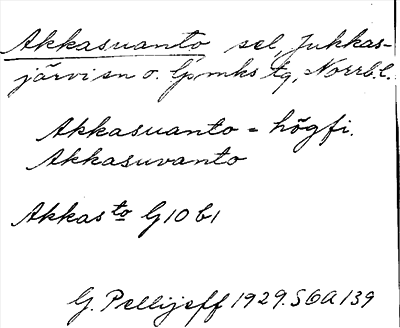 Akkasuanto sel, Jukkas-
järvi sn o. Gp mks tg, Norrb. l.
Akkasuanto = högfi.
Akkasuvanto
Akkasto G10 b1
G. Pellijeff 1929. SOA 139